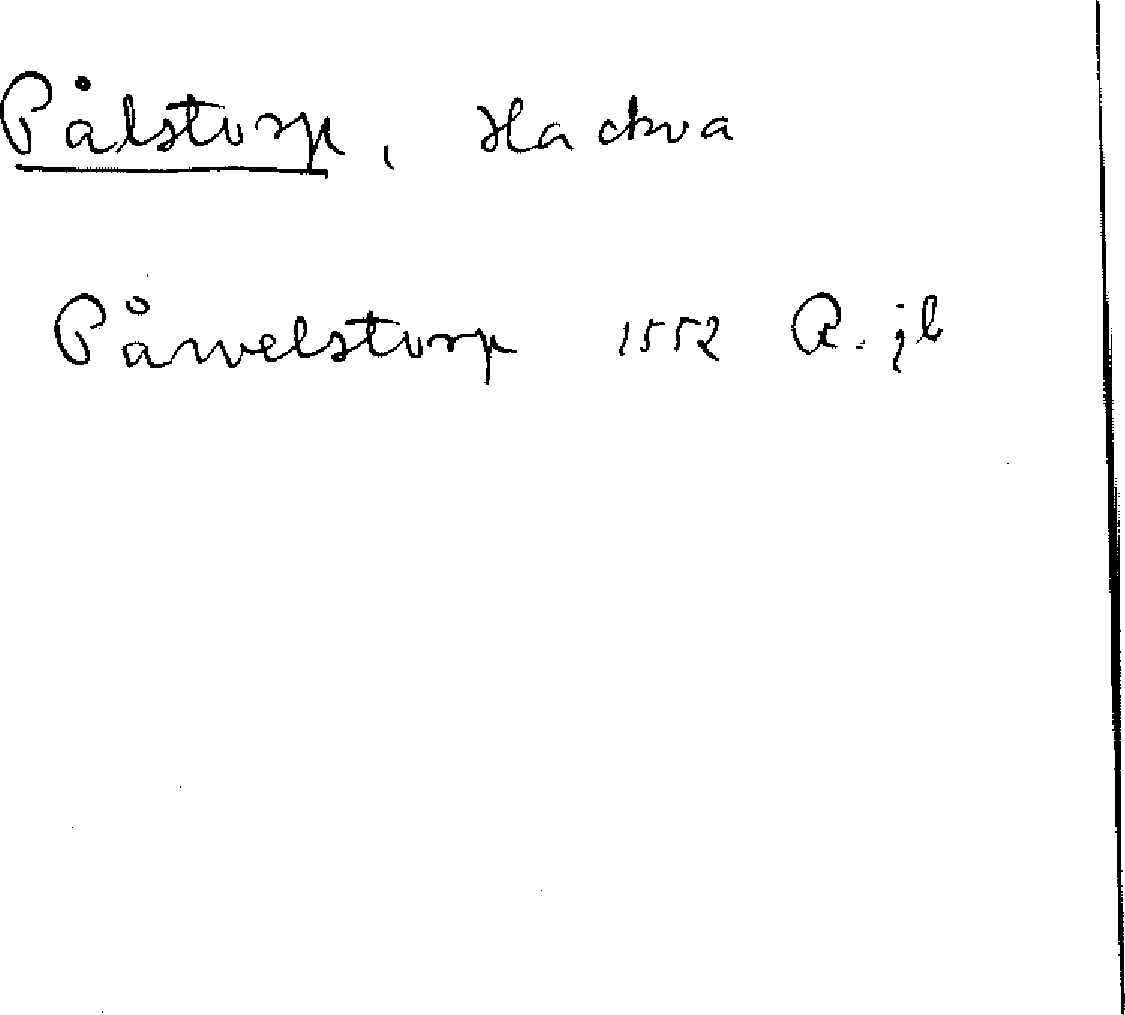 Pålstorp, Hackva
Påwelstorp 1552 R. jb